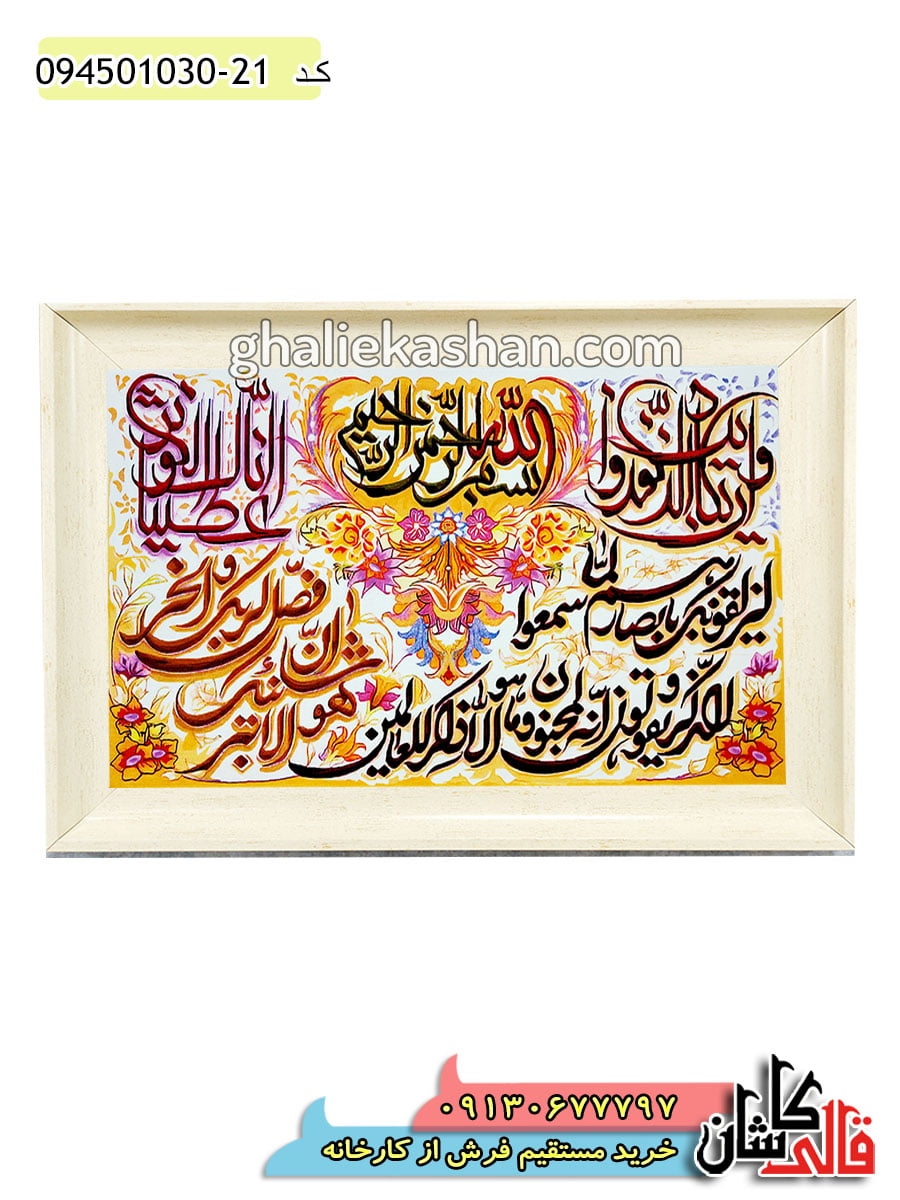 کد 094501030-21
ghaliekashan.com
بسم الله الرحمن الرحیم
وان یکاد الذین کفروا
لیزلقونک بابصارهم لما سمعوا
الذکر و یقولون انه لمجنون و ما هو الا ذکر للعالمین
انا اعطیناک الکوثر
فصل لربک وانحر
ان شانئک
هو الابتر
۰۹۱۳۰۶۷۷۷۹۷
خرید مستقیم فرش از کارخانه
قالی کاشان